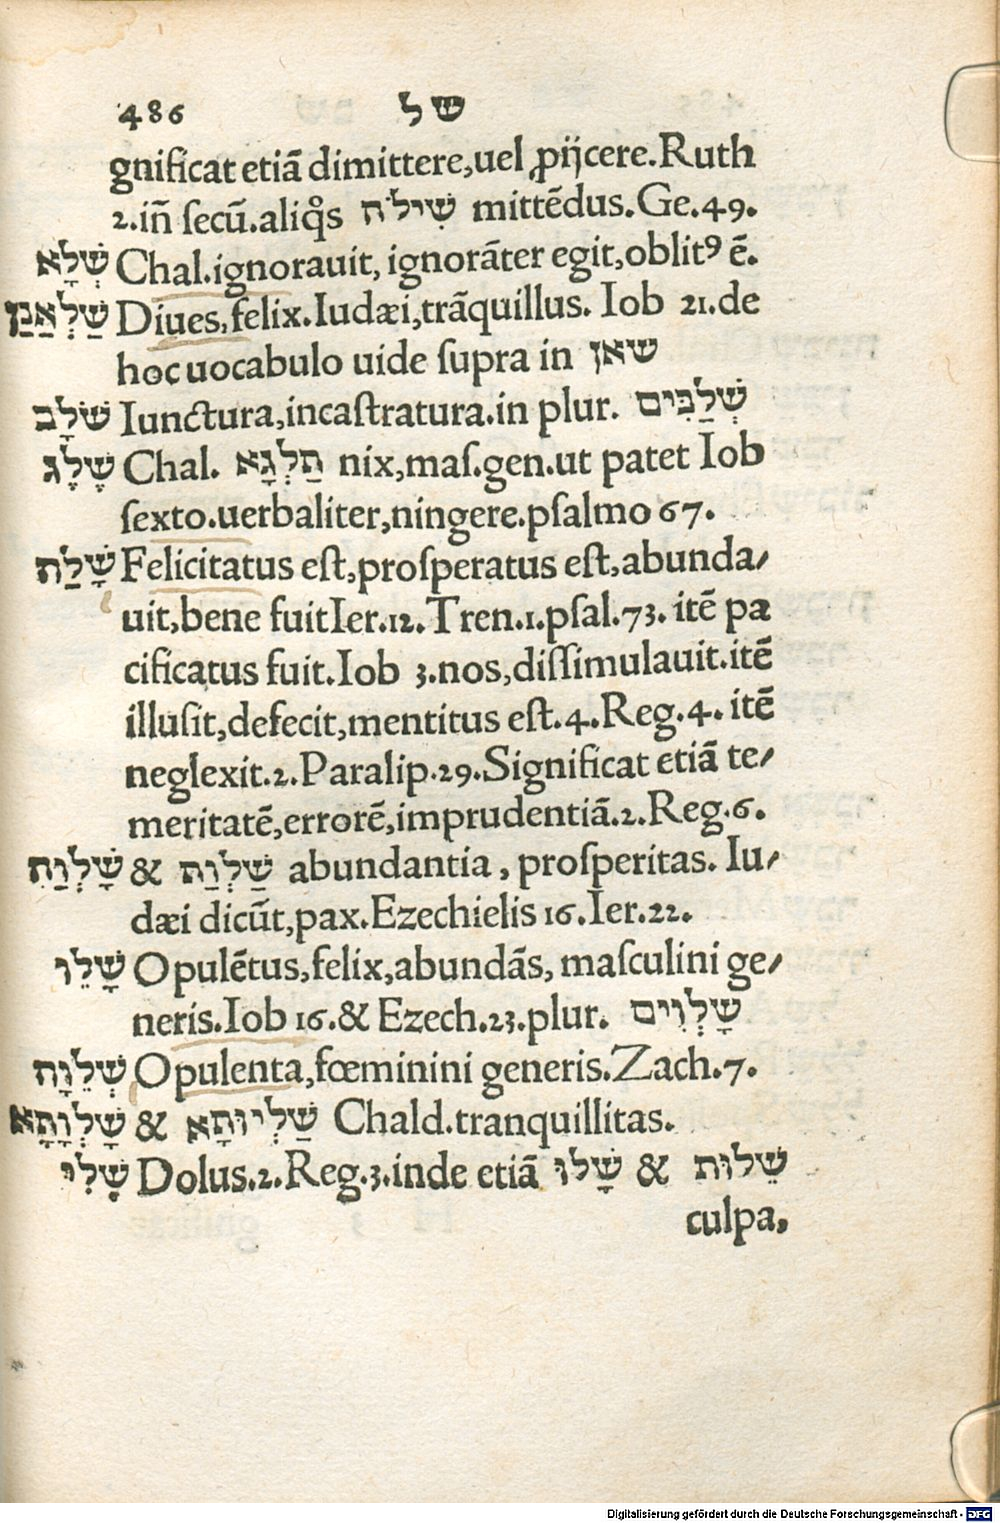 486 של
gnificat etiã dimittere,uel ꝓijcere.Ruth
2.iñ secũ.aliqͦs שִׁילֹח mittẽdus.Ge.49.
שְׁלָא Chal.ignorauit, ignorãter egit,oblitꝰ ẽ.
שַׁלְאֲנַן Diues,felix.Iudæi,trãquillus. Iob 21.de
hoc uocabulo uide supra in שאן
שֹׁלָב Iunctura,incastratura.in plur. שְׁלַבִּים
שֶׁלֶג Chal. תַּלְגָא nix,mas.gen.ut patet Iob
sexto.uerbaliter,ningere.psalmo 67.
שָׁלַה Felicitatus est,prosperatus est,abunda/
uit,bene fuitIer.12. Tren.1.psal.73. itẽ pa
cificatus fuit.Iob 3.nos,dissimulauit.itẽ
illusit,defecit,mentitus est.4.Reg.4. itẽ
neglexit.2.Paralip.29.Significat etiã te/
meritatẽ,errorẽ,imprudentiã.2.Reg.6.
שָׁלְוַה & שַׁלְוַת abundantia, prosperitas. Iu/
dæi dicũt,pax.Ezechielis 16.Ier.22.
שָׁלֵוּ Opulẽtus,felix,abundãs, masculini ge/
neris.Iob 16.& Ezech.23.plur. שָׁלְוִים
שְׁלֵוָה Opulenta,fœminini generis.Zach.7.
שָׁלְוָתָא & שַׁלְיוּתָא Chald.tranquillitas.
שָׁלִוּ Dolus.2.Reg.3.inde etiã שָׁלוּ & שֵׁלוּת
culpa,
Digitalisierung gefördert durch die Deutsche Forschungsgemeinschaft - DFG